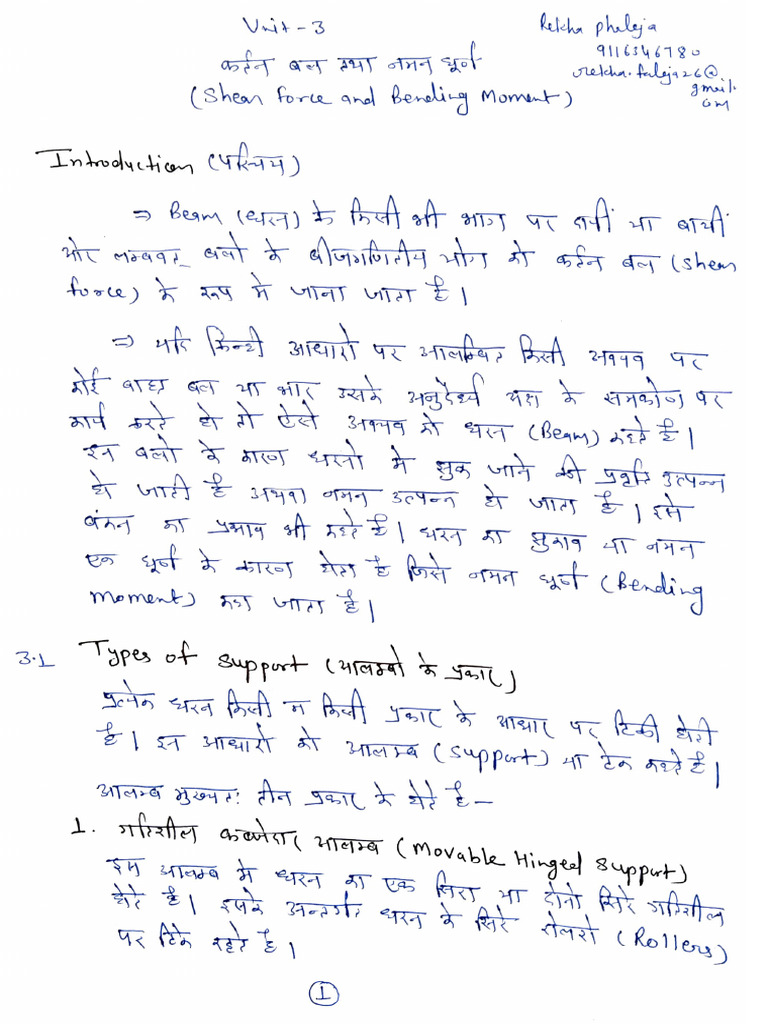 Unit-3
Rekha phaleja
9116346780
rekha.faleja26@
gmail.
com
कर्तन बल तथा नमन घूर्ण
(Shear force and Bending Moment)
Introduction (परिचय)
⇒ Beam (धरन) के किसी भी भाग पर दायीं या बायीं
ओर लम्बवत बलो के बीजगणितीय योग को कर्तन बल (Shear
force) के रूप मे जाना जाता है।
⇒ यदि किन्ही आधारो पर आलम्बित किसी अवयव पर
कोई बाह्य बल या भार उसके अनुदैर्ध्य अक्ष के समकोण पर
कार्य करते हो तो ऐसे अवयव को धरन (Beam) कहते है।
इन बलो के कारण धरनो मे झुक जाने की प्रवृति उत्पन्न
हो जाती है अथवा नमन उत्पन्न हो जाता है। इसे
बंकन का प्रभाव भी कहते है। धरन का झुकाव या नमन
एक घूर्ण के कारण होता है जिसे नमन घूर्ण (Bending
Moment) कहा जाता है।
3.1 Types of Support (आलम्बो के प्रकार)
प्रत्येक धरन किसी न किसी प्रकार के आधार पर टिकी होती
है। इन आधारो को आलम्ब (Support) या टेक कहते है।
आलम्ब मुख्यतः तीन प्रकार के होते है—
1. गतिशील कब्जेदार आलम्ब (Movable Hinged Support)
इस आलम्ब मे धरन का एक सिरा या दोनो सिरे गतिशील
होते है। इसके अन्तर्गत धरन के सिरे रोलरो (Rollers)
पर टिके रहते है।
1